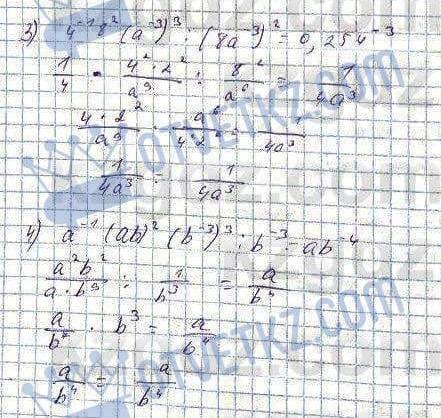 3) 4⁻¹8²(a⁻³)³ : (8a⁻³)² = 0,25a⁻³
1/4 · 4²·2²/a⁹ : 8²/a⁶ = 1/4a³
4·2²/a⁹ · a⁶/4²·2² = 1/4a³
1/4a³ = 1/4a³
4) a⁻¹(ab)²(b⁻³)³ : b⁻³ = ab⁻⁴
a²b²/a·b⁹ : 1/b³ = a/b⁴
a/b⁷ · b³ = a/b⁴
a/b⁴ = a/b⁴
OTVETKZ.COM
OTVETKZ.COM